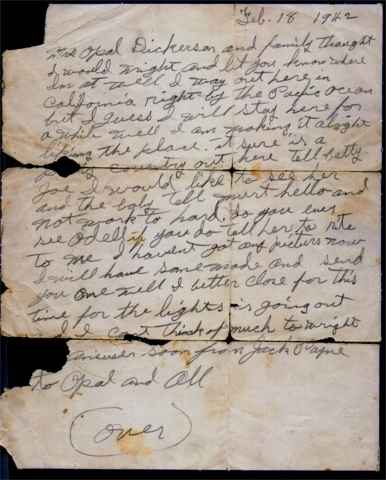 Feb. 18 1942
Mrs Opal Dickerson and family thought
I would wright and let you know where
Im at well I way out here in
California right by the Pasific ocean
but I guess I will stay here for
a while well I am making it alright
liking the place. it sure is a
country out here tell betty
Joe I would like to see her
and the baby tell hello and
not work to hard. do you ever
see Odell if you do tell her to rite
to me I havent got any picturs now
I will have some made and send
you one well I better close for this
time for the lights is going out
and I cant think of much to wright
answer soon from Jack Payne
to Opal and All
(over)